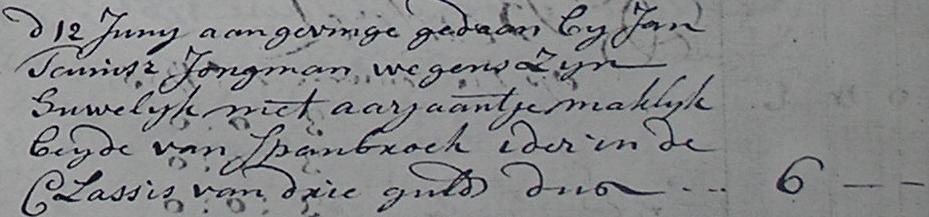 d 12 Juny aangevinge gedaan by Jan
Teunisz Jongman wegens Zyn
Huwelyk met aarjaantje maklyk
beyde van Spanbroek ider in de
CLassis van drie guld dus --- 6 — —